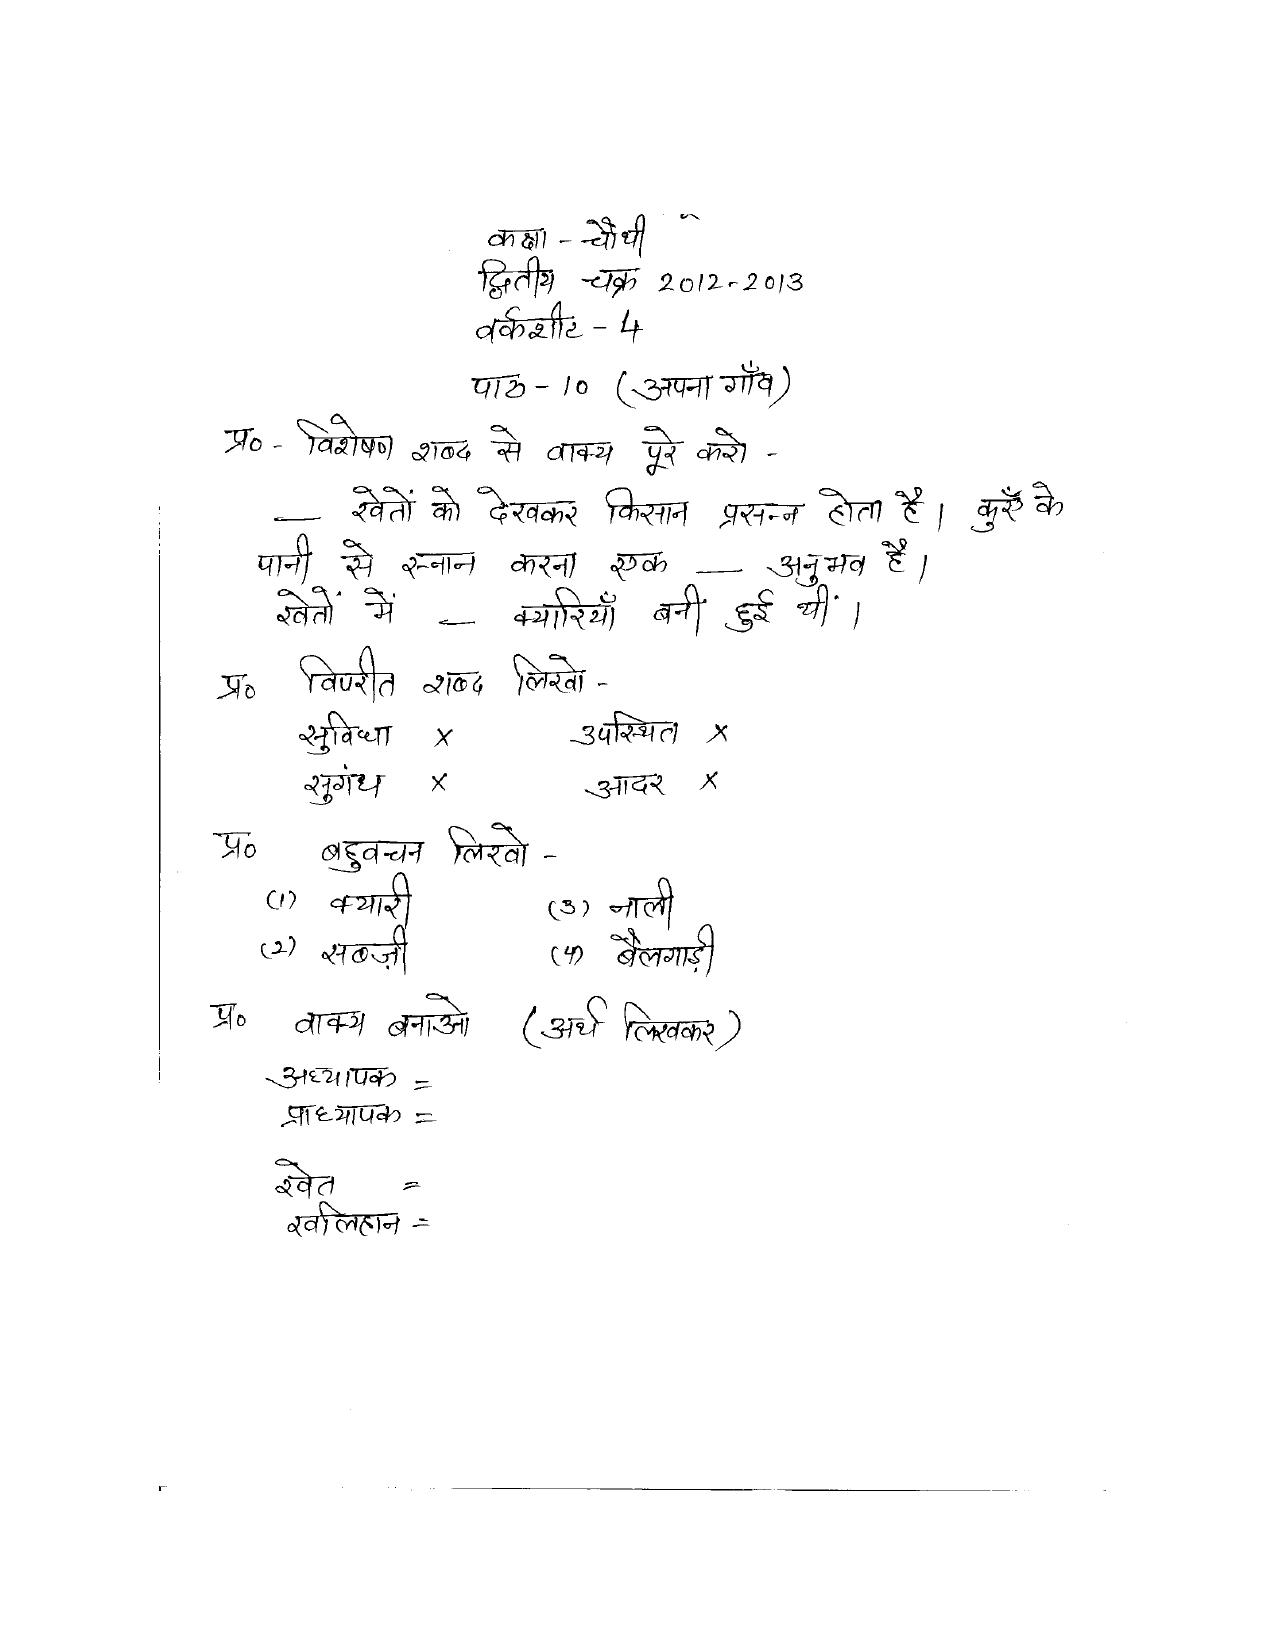 कक्षा - चौथी
द्वितीय चक्र 2012-2013
वर्कशीट - 4
पाठ - 10 (अपना गाँव)
प्र० - विशेषण शब्द से वाक्य पूरे करो -
— खेतों को देखकर किसान प्रसन्न होता है। कुएँ के
पानी से स्नान करना एक — अनुभव है।
खेतों में — क्यारियाँ बनीं हुई थीं।
प्र० विपरीत शब्द लिखो -
सुविधा × उपस्थित ×
सुगंध × आदर ×
प्र० बहुवचन लिखो -
(1) क्यारी (3) नाली
(2) सब्ज़ी (4) बैलगाड़ी
प्र० वाक्य बनाओ (अर्थ लिखकर)
अध्यापक =
प्राध्यापक =
खेत =
खलिहान =